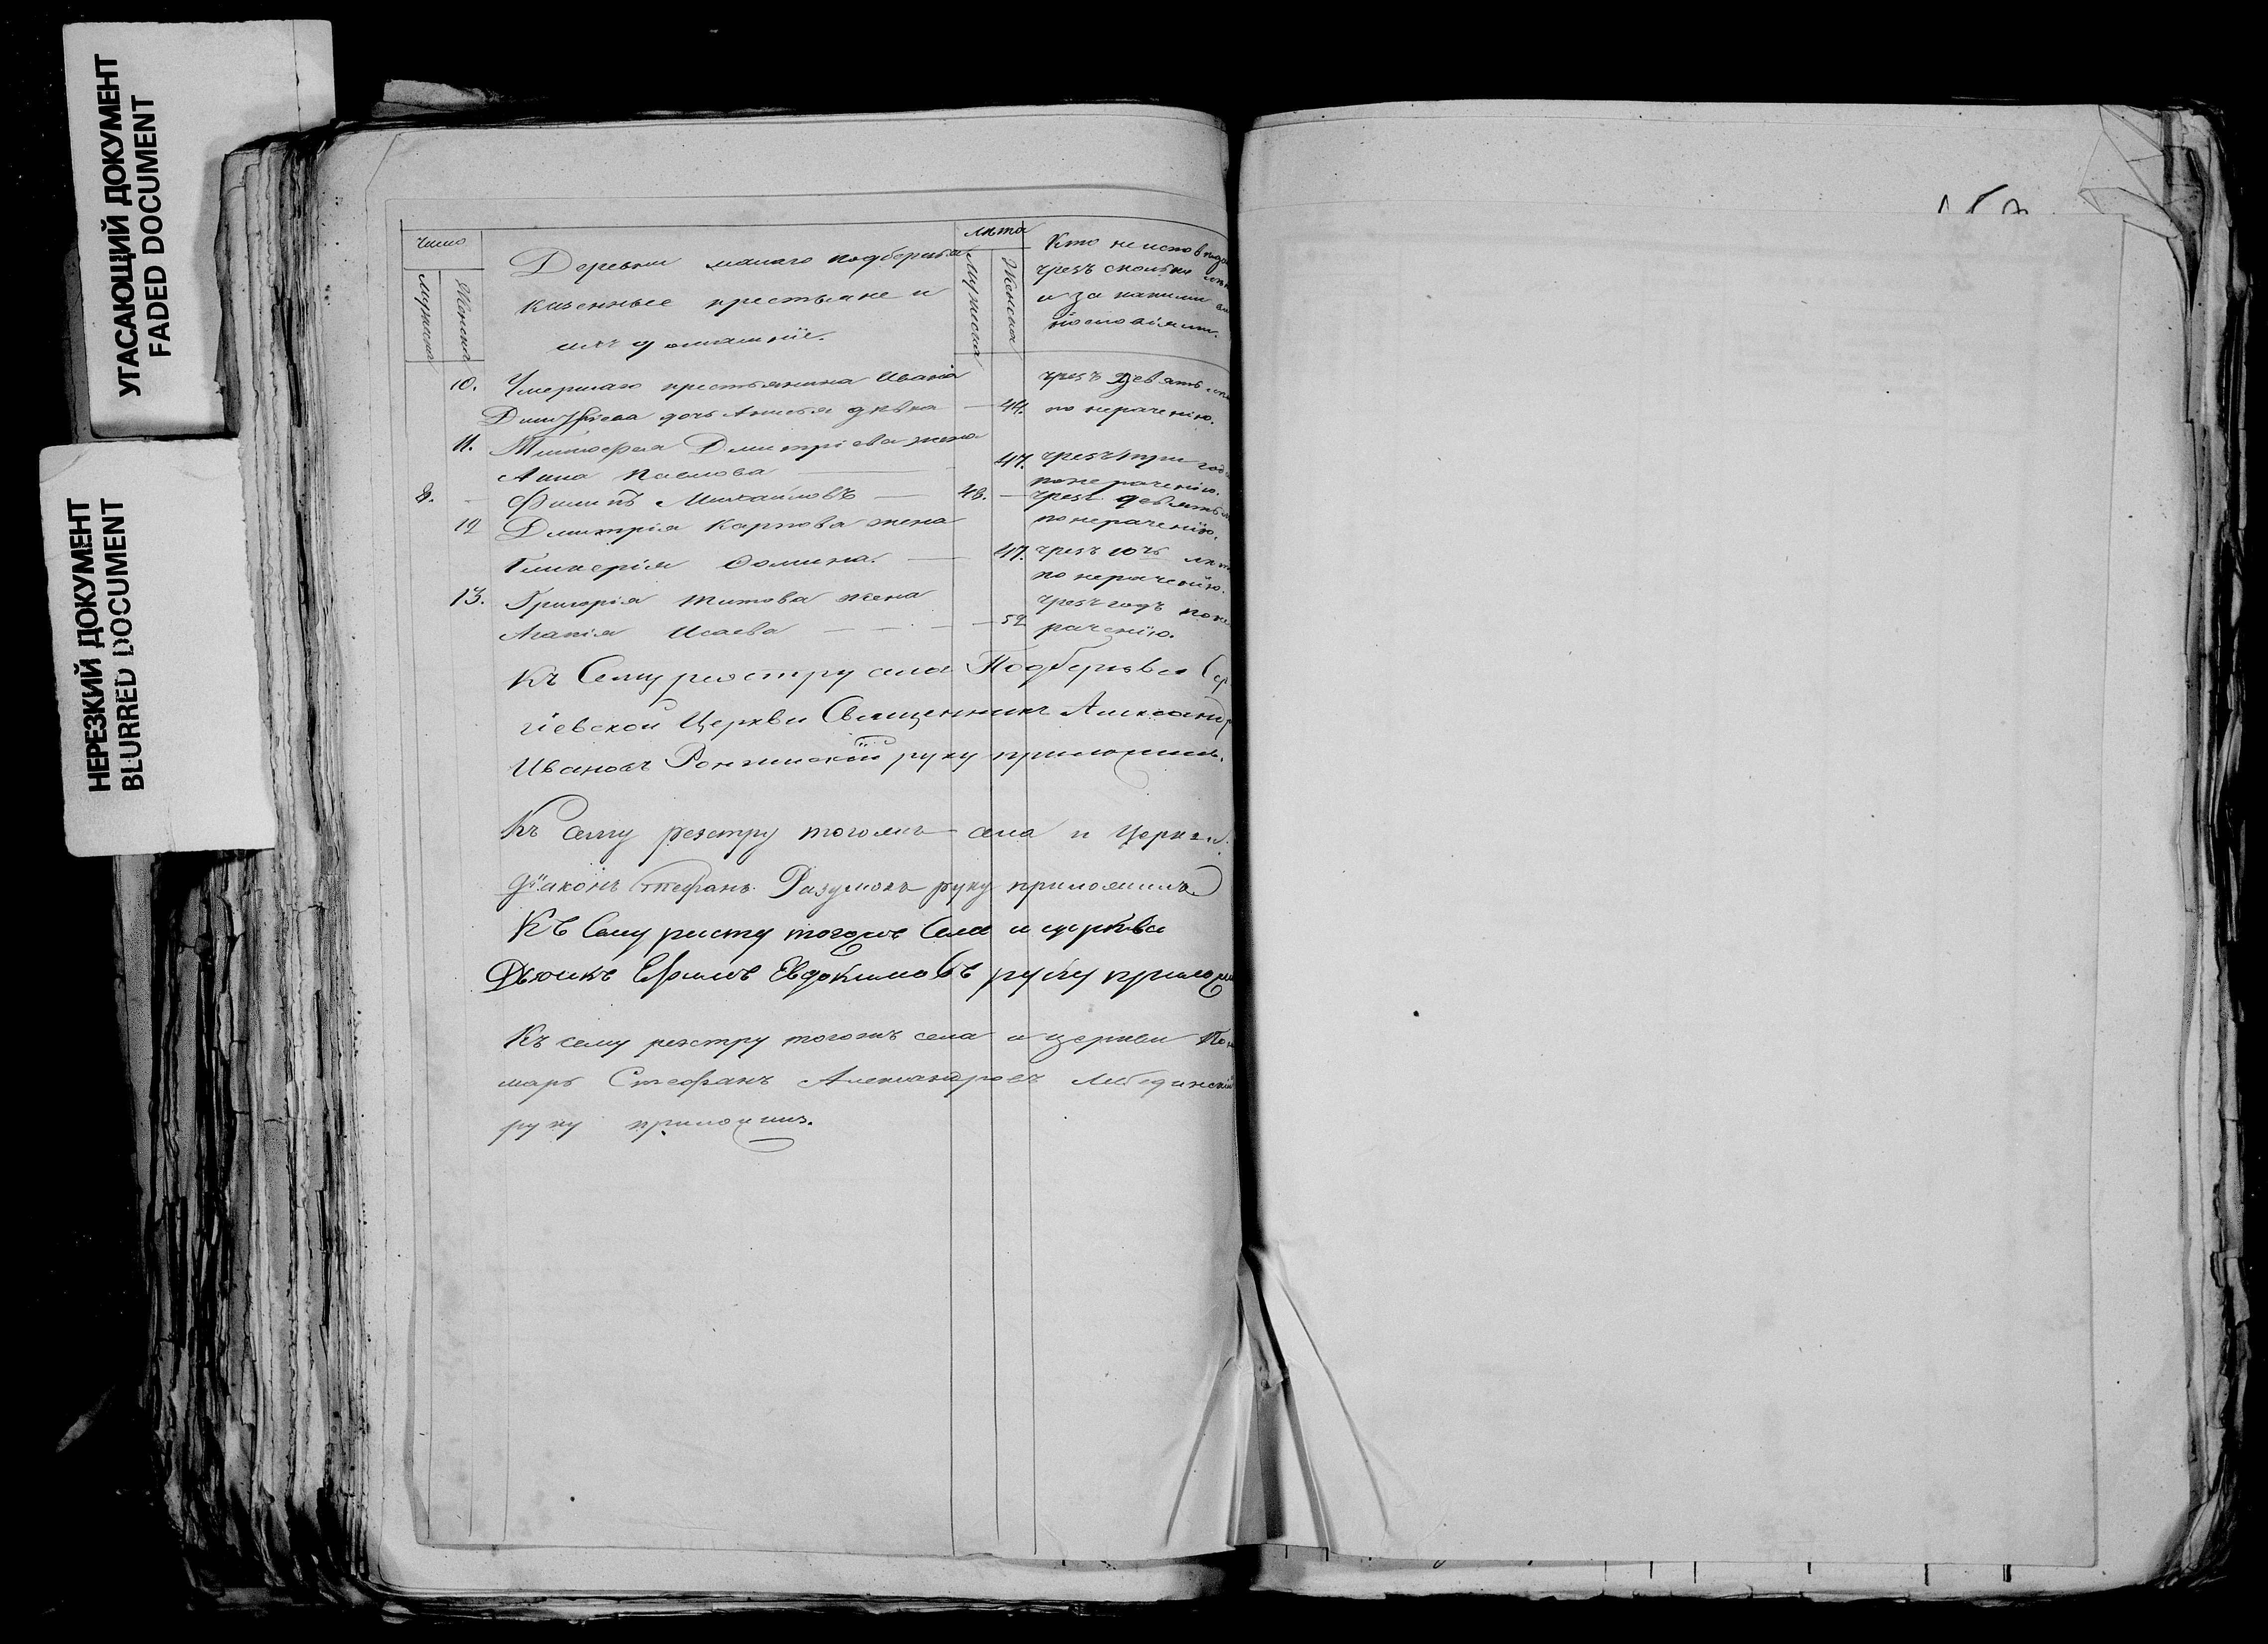 УГАСАЮЩИЙ ДОКУМЕНТ
FADED DOCUMENT
НЕРЕЗКИЙ ДОКУМЕНТ
BLURRED DOCUMENT
число
Мужеска
Женска
Деревни малаго подберезья
казенные крестьяне и
ихъ домашніе.
лета
Мужеска
Женска
Кто не исповедо
чрезъ сколько
и за какими
нословіями.
10. Умершаго крестьянина Ивана
Дмитріева дочь девка — 44. чрезъ девять
по нераченію.
11. Тимофея Дмитріева жена
Анна Павлова — 47. чрезъ три год
по нераченію.
8. — Филипъ Михайловъ — 48. — чрезъ девять
по нераченію.
12 Дмитрія Карпова жена
Гликерія Фомина. — 47. чрезъ 10ть
по нераченію.
13. Григорія Титова жена
Агапія Исаева — — — 52 чрезъ годъ поне
раченію.
Къ Сему реэстру села Подберезья Сер
гіевской Церкви Священникъ Александр
Ивановъ руку приложилъ.
Къ сему реэстру тогожъ села и Церкви
діаконъ Стефанъ Разумовъ руку приложилъ
Къ Сему ристу тогоже Села и церкви
Дьячикъ Ефимъ Евдокимовъ руку приложи
Къ сему реэстру тогожъ села и церкви Поно
марь Стефанъ Александровъ Лебединскій
руку приложилъ.